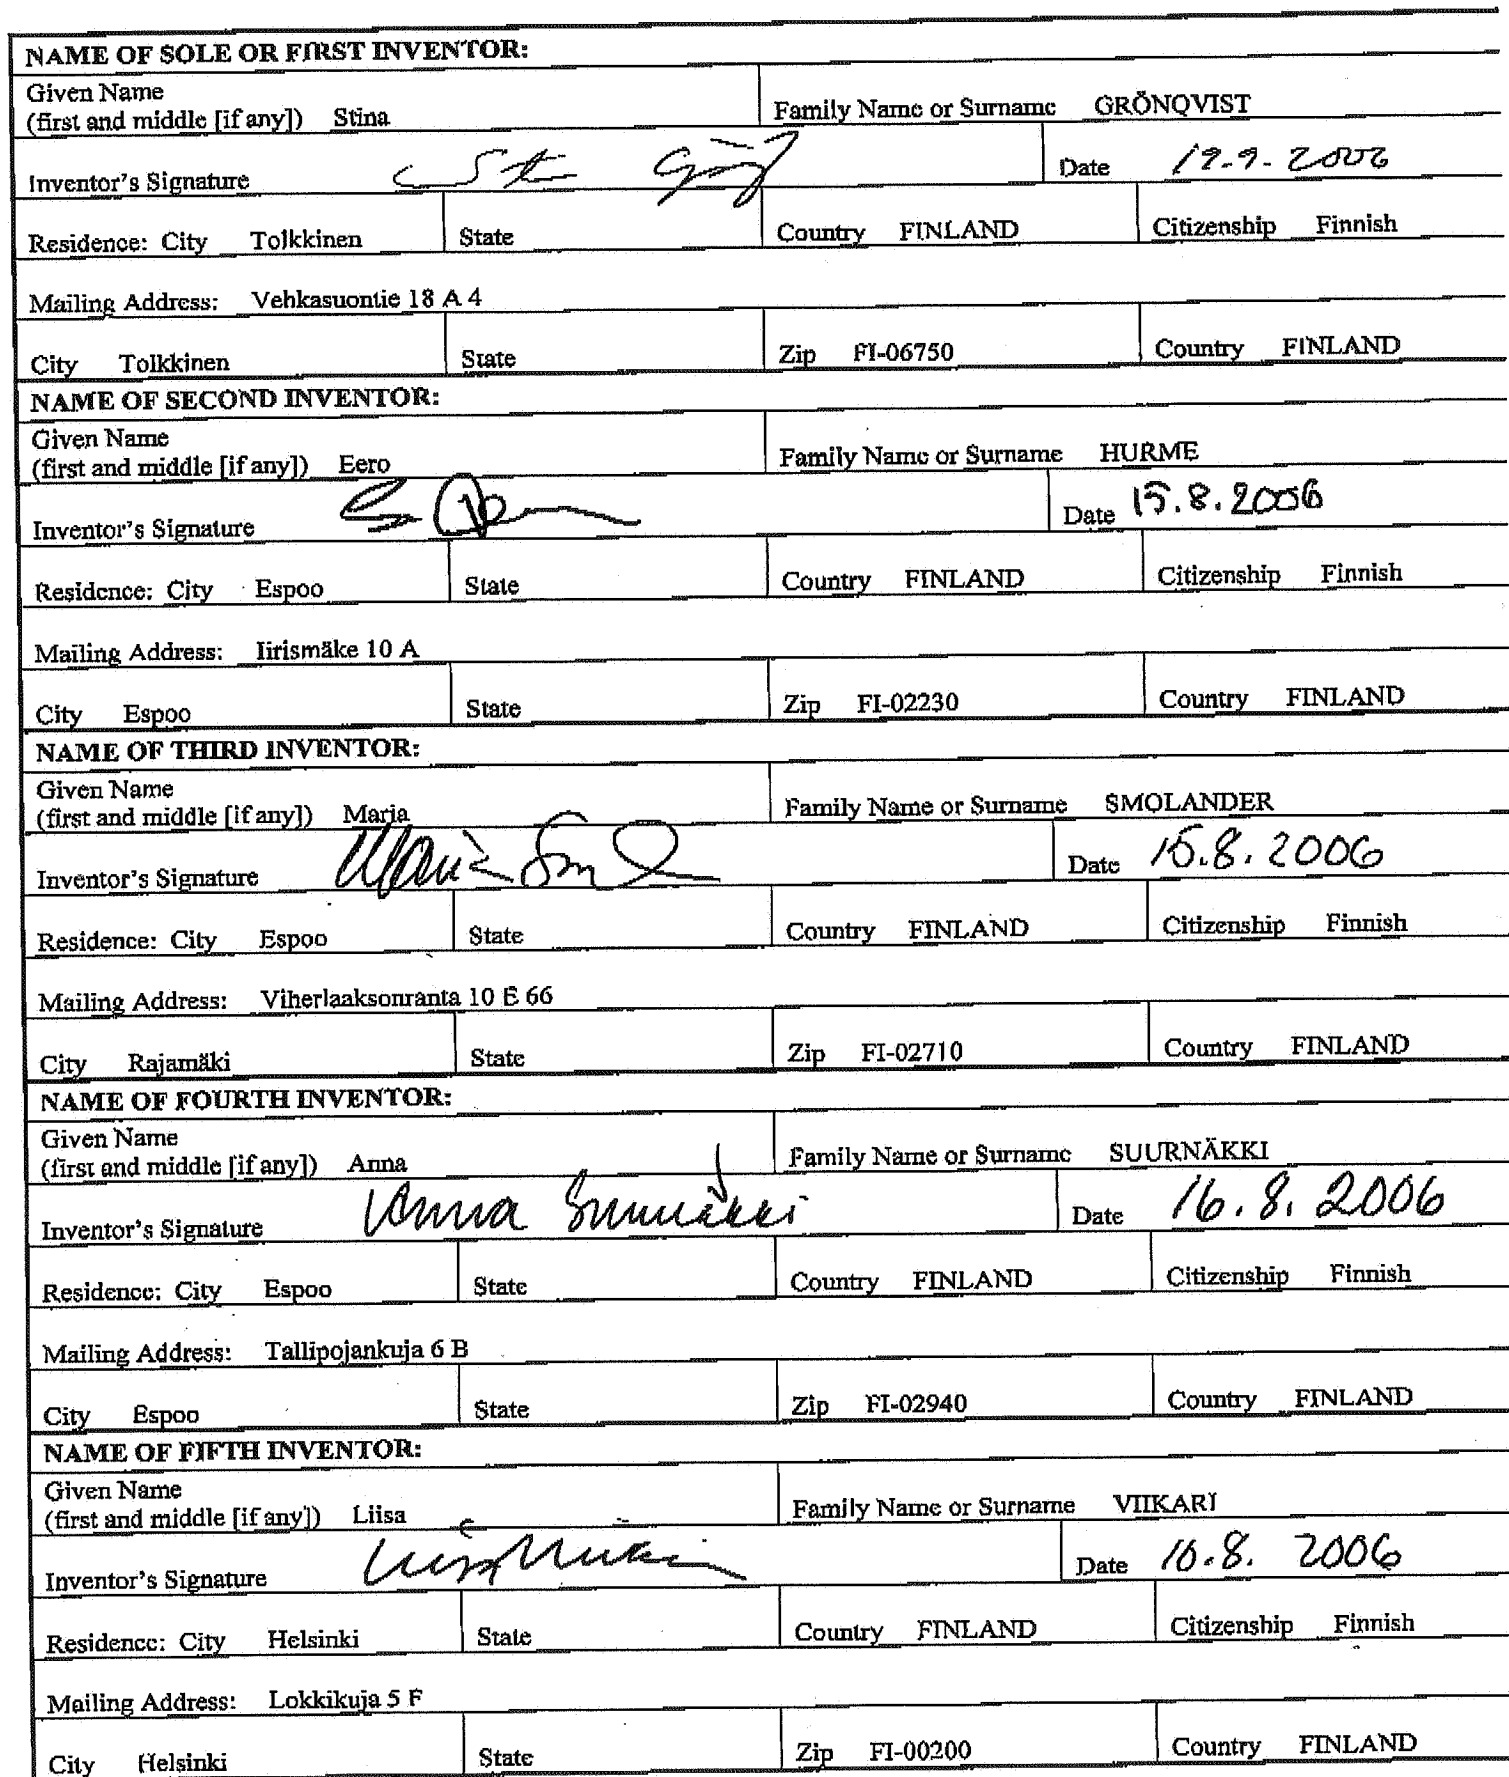 NAME OF SOLE OR FIRST INVENTOR:
Given Name
(first and middle [if any]) Stina Family Name or Surname GRÖNQVIST
Inventor's Signature Date
Residence: City Tolkkinen State Country FINLAND Citizenship Finnish
Mailing Address: Vehkasuontie 18 A 4
City Tolkkinen State Zip FI-06750 Country FINLAND
NAME OF SECOND INVENTOR:
Given Name
(first and middle [if any]) Eero Family Name or Surname HURME
Inventor's Signature Date 15.8.2006
Residence: City Espoo State Country FINLAND Citizenship Finnish
Mailing Address: Iirismäke 10 A
City Espoo State Zip FI-02230 Country FINLAND
NAME OF THIRD INVENTOR:
Given Name
(first and middle [if any]) Maria Family Name or Surname SMOLANDER
Inventor's Signature Date 15.8.2006
Residence: City Espoo State Country FINLAND Citizenship Finnish
Mailing Address: Viherlaaksonranta 10 E 66
City Rajamäki State Zip FI-02710 Country FINLAND
NAME OF FOURTH INVENTOR:
Given Name
(first and middle [if any]) Anna Family Name or Surname SUURNÄKKI
Inventor's Signature Anna Suurnäkki Date 16.8.2006
Residence: City Espoo State Country FINLAND Citizenship Finnish
Mailing Address: Tallipojankuja 6 B
City Espoo State Zip FI-02940 Country FINLAND
NAME OF FIFTH INVENTOR:
Given Name
(first and middle [if any]) Liisa Family Name or Surname VIIKARI
Inventor's Signature Date
Residence: City Helsinki State Country FINLAND Citizenship Finnish
Mailing Address: Lokkikuja 5 F
City Helsinki State Zip FI-00200 Country FINLAND